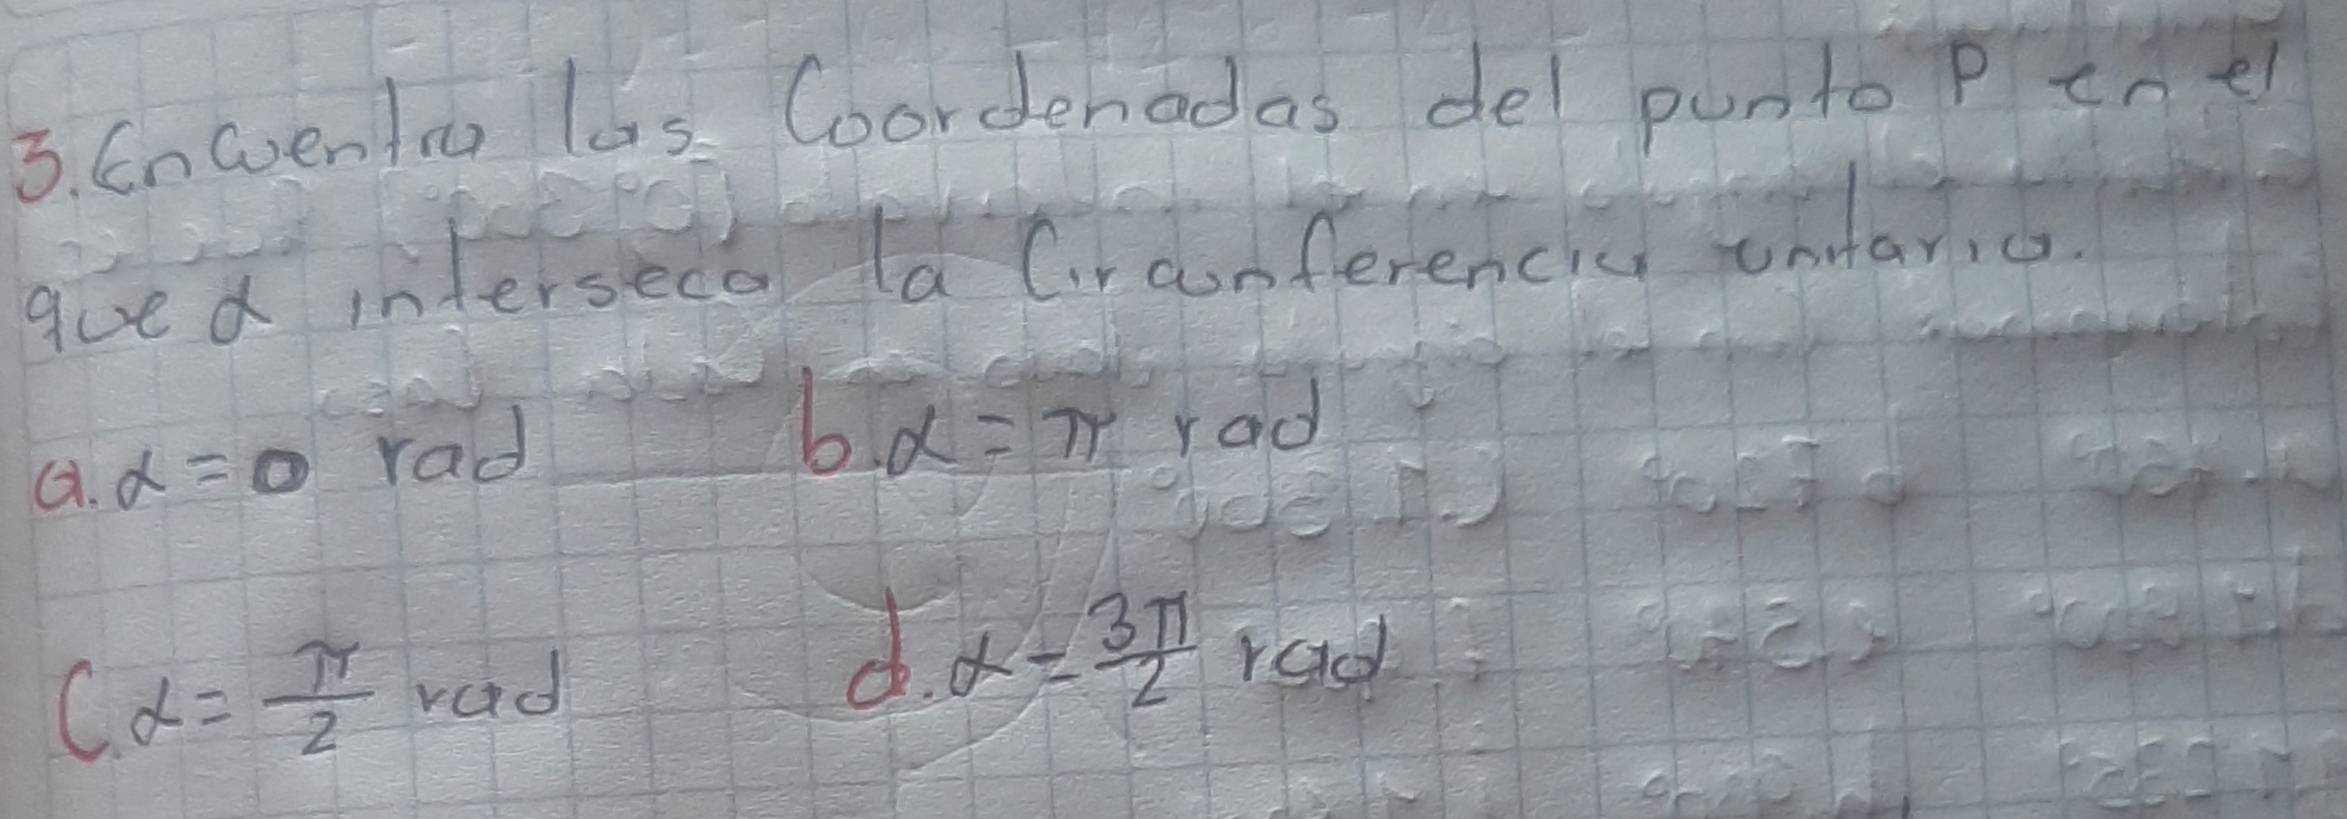 3. Encuentra las Coordenadas del punto P en el
que α interseca la Circunferencia unitaria.
a. α = 0 rad b. α = π rad
C. α = π/2 rad d. α = 3π/2 rad